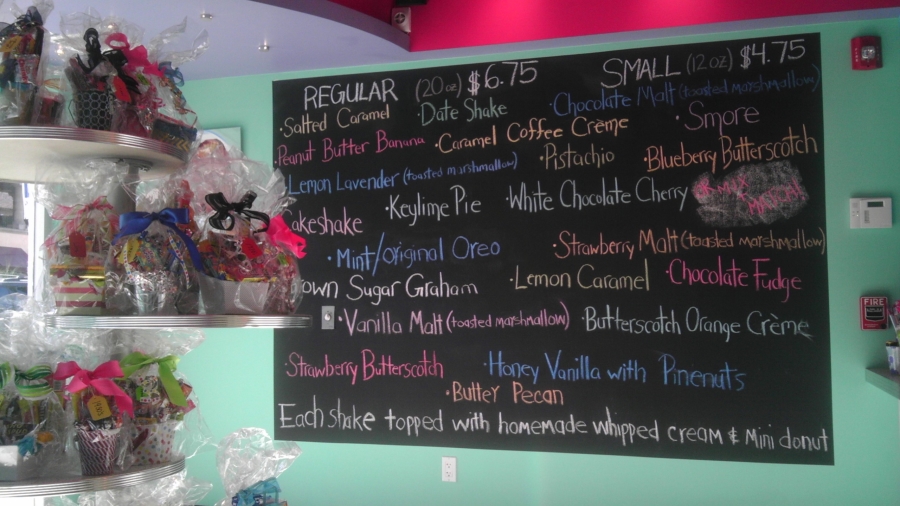 REGULAR (20oz) $6.75 SMALL (12oz) $4.75
·Salted Caramel ·Date Shake ·Chocolate Malt (toasted marshmallow)
·Peanut Butter Banana ·Caramel Coffee Crème ·Smore
·Lemon Lavender (toasted marshmallow) ·Pistachio ·Blueberry Butterscotch
Cakeshake ·Keylime Pie ·White Chocolate Cherry
·Mint/Original Oreo ·Strawberry Malt (toasted marshmallow)
own Sugar Graham ·Lemon Caramel ·Chocolate Fudge
·Vanilla Malt (toasted marshmallow) ·Butterscotch Orange Crème
·Strawberry Butterscotch ·Honey Vanilla with Pinenuts
·Butter Pecan
Each shake topped with homemade whipped cream & Mini donut
FIRE